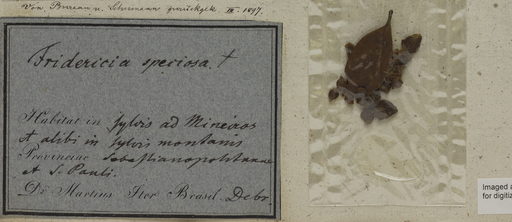 Von Bureau u. Schumann zurückgek. III. 1897.
Fridericia speciosa. †
Habitat in sylvis ad Mineiros
et alibi in sylvis montanis
Provinciae Sebastianopolitanae
et S. Pauli.
Dr. Martius Iter Brasil. Debr.
Imaged a
for digitiz